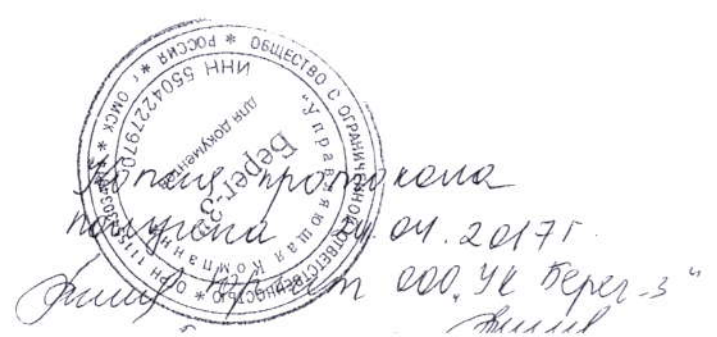 ОБЩЕСТВО С ОГРАНИЧЕННОЙ ОТВЕТСТВЕННОСТЬЮ
* РОССИЯ * г. ОМСК * ОГРН
ИНН 5504227970
"Управляющая Компания
Берег-3"
для документов
Копия протокола
получена 24.04.2017г.
Юрист ООО "УК Берег-3"